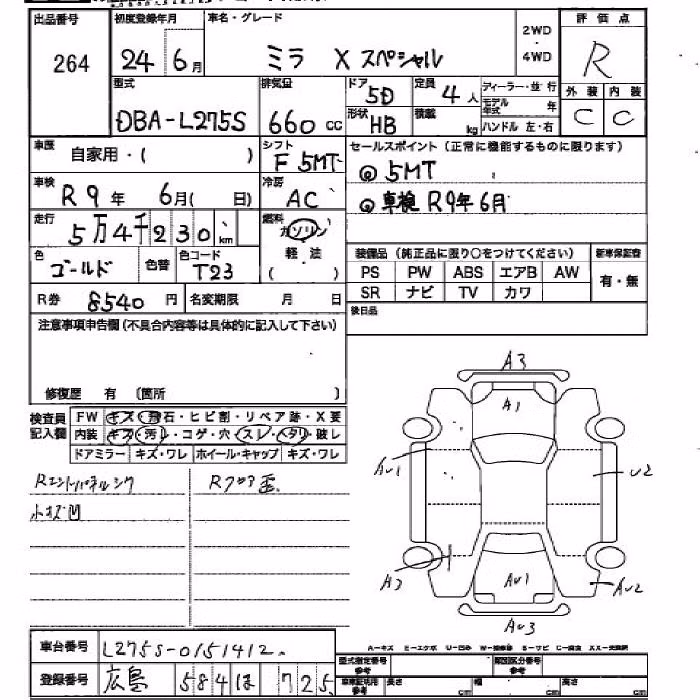 出品番号 初度登録年月 車名・グレード 2WD・4WD 評価点
264 24年6月 ミラ X スペシャル R
型式 排気量 ドア 5D 定員 4人 ディーラー・並行 外装 内装
DBA-L275S 660cc 形状 HB 積載 kg モデル年式 年 ハンドル 左・右 C C
車歴 自家用・( ) シフト F 5MT セールスポイント (正常に機能するものに限ります)
◎ 5MT
車検 R9年 6月( 日) 冷房 AC ◎ 車検 R9年6月
走行 5万4千230km 燃料 ガソリン
軽油
( )
色 ゴールド 色替 色コード T23
装備品 (純正品に限り○をつけてください) 新車保証書
PS PW ABS エアB AW 有・無
SR ナビ TV カワ
R券 8540円 名変期限 月 日 後日品
注意事項申告欄(不具合内容等は具体的に記入して下さい)
修復歴 有 (箇所 )
検査員記入欄 FW キズ・飛石・ヒビ割・リペア跡・X要
内装 キズ・汚レ・コゲ・穴・スレ・ヘタリ・破レ
ドアミラー キズ・ワレ ホイール・キャップ キズ・ワレ
Rフロア歪
小キズ凹
A3
A1
AU1
U2
A3
AU1
AU2
AU3
A-キズ E-エクボ U-凹み W-補修跡 S-サビ C-腐食 XX-交換済
車台番号 L275S-0151412
登録番号 広島 584 ほ 725
型式指定番号 参考 類別区分番号 参考
車庫証明用 参考 長さ cm 幅 cm 高さ cm